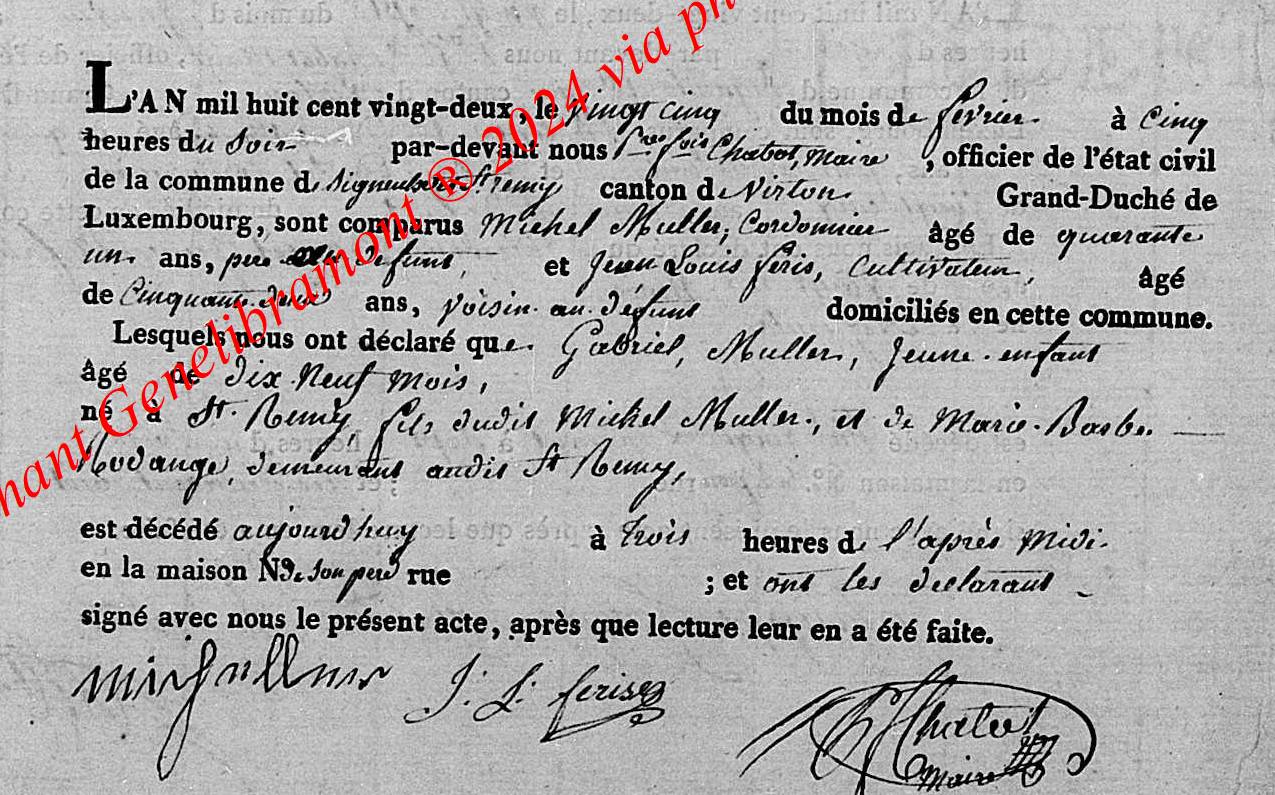 L'AN mil huit cent vingt-deux, le vingt cinq du mois de fevrier à Cinq
heures du Soir par-devant nous Chabot, Maire, officier de l'état civil
de la commune de St remy canton de Virton Grand-Duché de
Luxembourg, sont comparus Michel Muller, Cordonnier âgé de quarante
un ans, pere du defunt, et Jean Louis feris, Cultivateur, âgé
de Cinquante deux ans, voisin au défunt domiciliés en cette commune.
Lesquels nous ont déclaré que Gabriel, Muller, jeune enfant
âgé de dix Neuf mois,
né à St. Remy, fils dudit Michel Muller, et de Marie Barbe
Rodange, demeurant audit St Remy,
est décédé aujourd'huy à trois heures de l'après Midi
en la maison N de son pere rue ; et ont les declarant
signé avec nous le présent acte, après que lecture leur en a été faite.
J: L: ferisez
Chabot
Maire
hant Genelibramont ® 2024 via ph